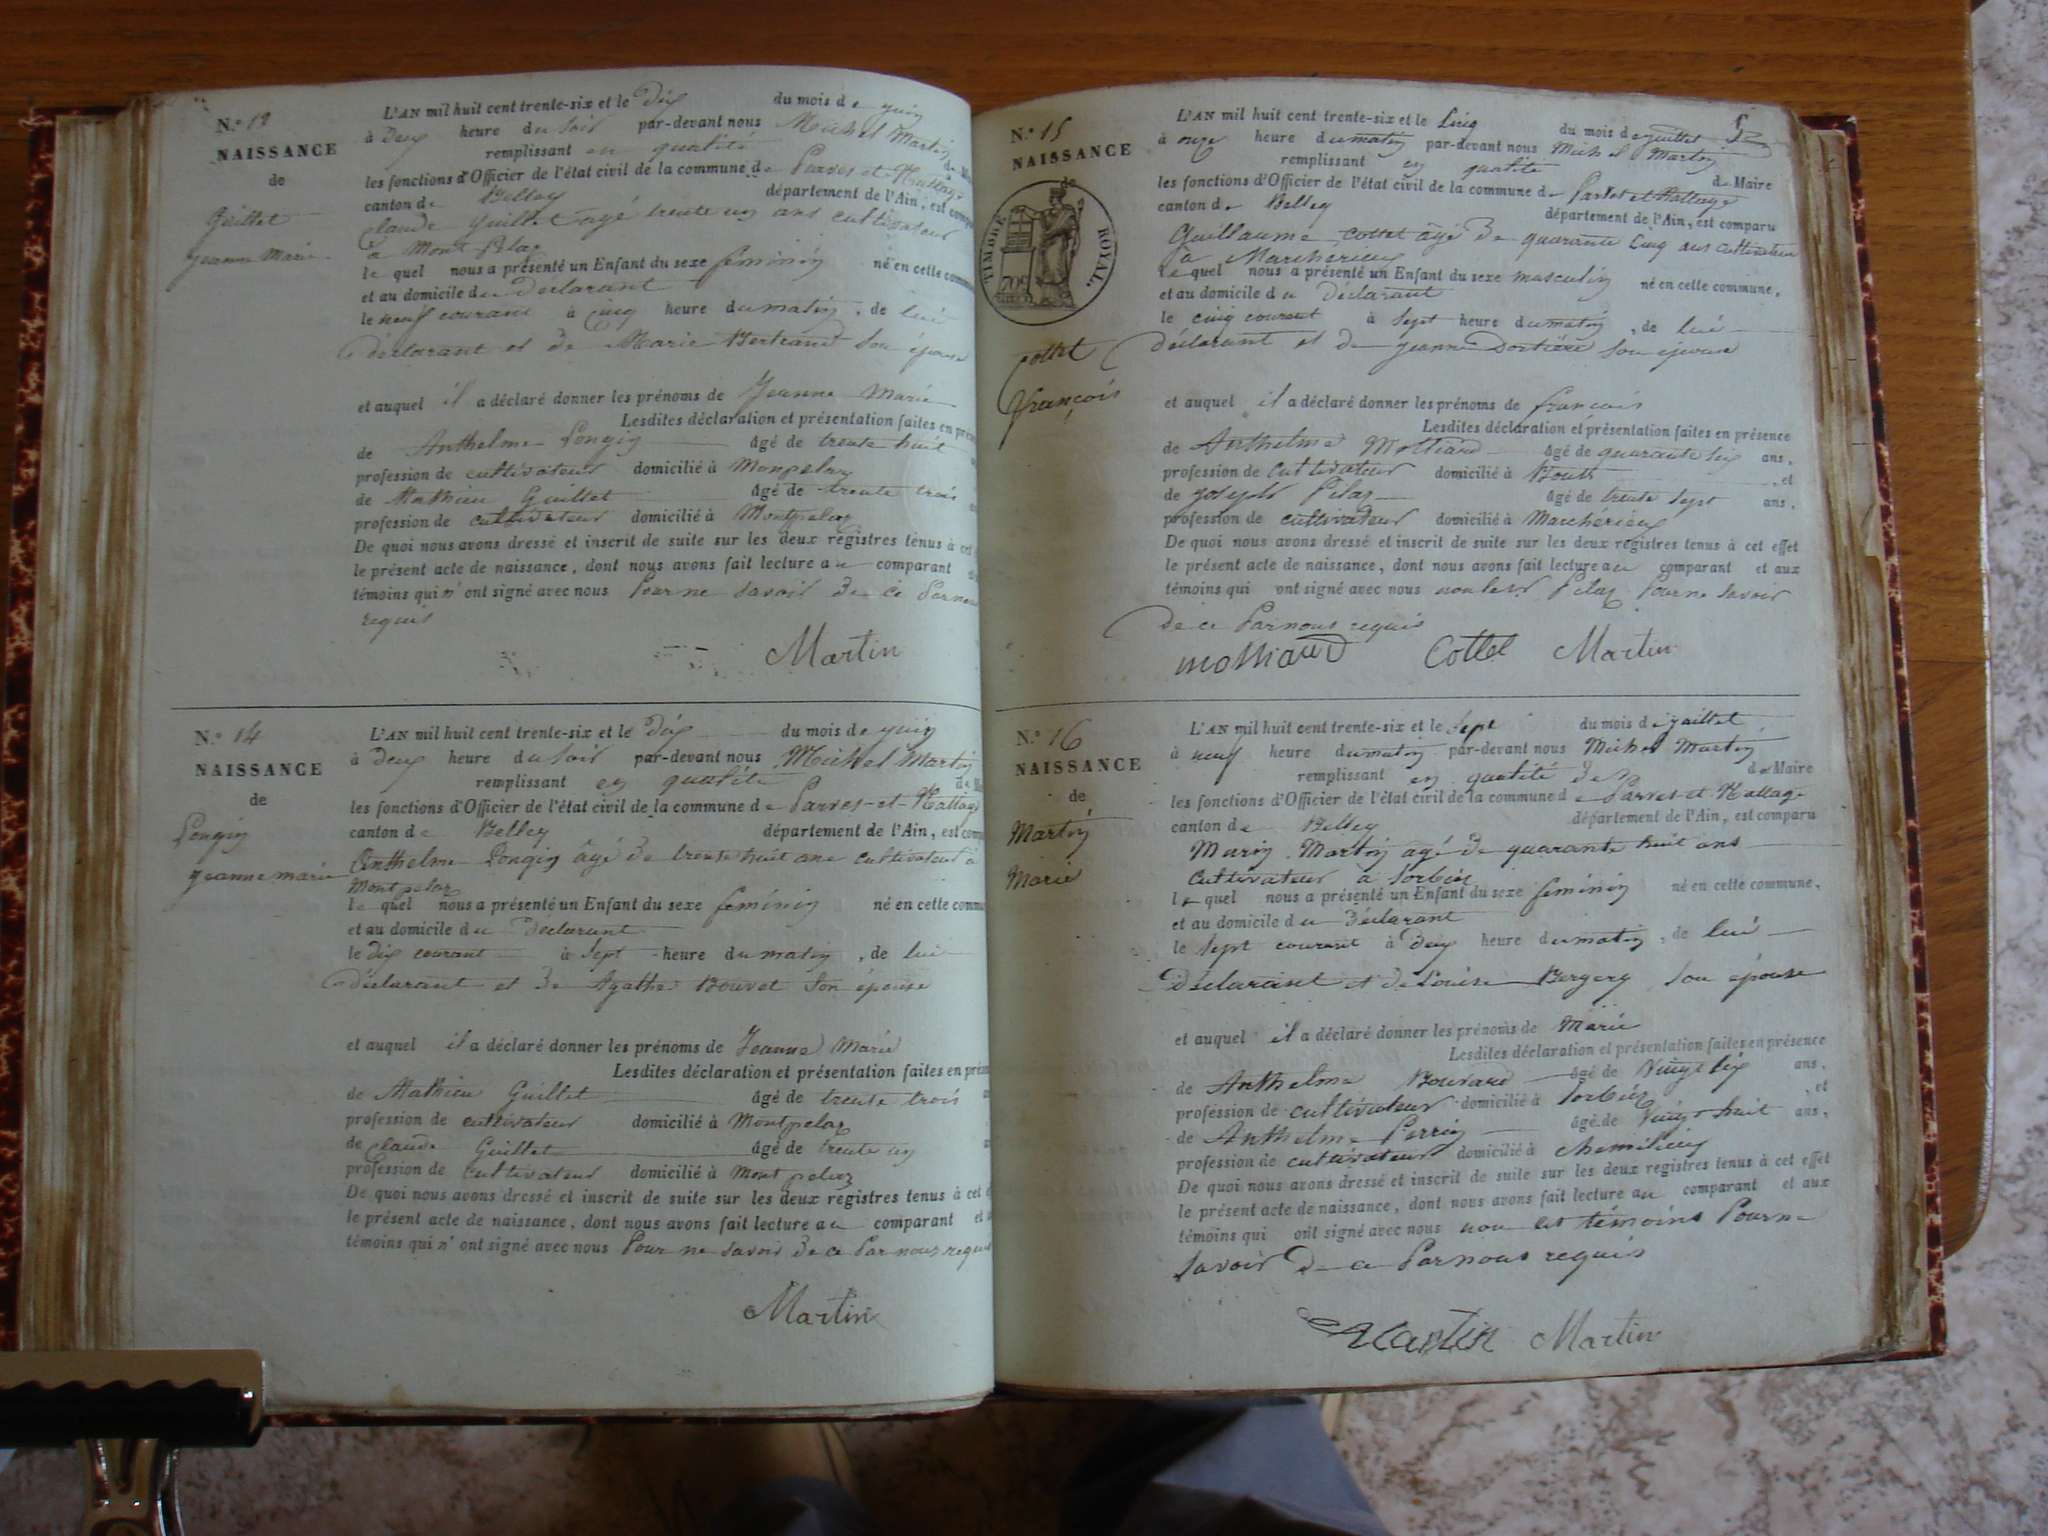 N.º
NAISSANCE
de
Guillet
Jeanne Marie
L'AN mil huit cent trente-six et le dix du mois de juin
à Deux heure du soir par-devant nous Michel Martin
remplissant en qualité de
les fonctions d'Officier de l'état civil de la commune de Parves-et-Nattage
canton de Belley département de l'Ain, est
Claude Guillet âgé trente un ans cultivateur
à Mont
le quel nous a présenté un Enfant du sexe féminin né en cette
et au domicile du Déclarant
le neuf courant à Cinq heure du matin, de lui
déclarant et de Marie Bertrand son épouse
et auquel il a déclaré donner les prénoms de Jeanne Marie
Lesdites déclaration et présentation faites en
de Anthelme Longin âgé de trente huit
profession de cultivateur domicilié à Monpelaz
de Mathieu Guillet âgé de trente trois
profession de cultivateur domicilié à Montpelaz
De quoi nous avons dressé et inscrit de suite sur les deux registres tenus à cet
le présent acte de naissance, dont nous avons fait lecture au comparant
témoins qui n'ont signé avec nous Pour ne savoir de ce Par nous
requis
Martin
N.º 14
NAISSANCE
de
Longin
Jeanne marie
L'AN mil huit cent trente-six et le Dix du mois de juin
à Deux heure du soir par-devant nous Michel Martin
remplissant en qualité de
les fonctions d'Officier de l'état civil de la commune de Parves-et-Nattage
canton de Belley département de l'Ain, est
Anthelme Longin âgé de trente huit ans cultivateur à
Montpelaz
le quel nous a présenté un Enfant du sexe féminin né en cette
et au domicile du Déclarant
le dix courant à sept heure du matin, de lui
déclarant et de Agathe Bouvet son épouse
et auquel il a déclaré donner les prénoms de Jeanne Marie
Lesdites déclaration et présentation faites en
de Mathieu Guillet âgé de trente trois
profession de cultivateur domicilié à Montpelaz
de Claude Guillet âgé de trente un
profession de cultivateur domicilié à Montpelaz
De quoi nous avons dressé et inscrit de suite sur les deux registres tenus à cet
le présent acte de naissance, dont nous avons fait lecture au comparant et
témoins qui n'ont signé avec nous Pour ne savoir de ce Par nous requis
Martin
5
N.º 15
NAISSANCE
de
TIMBRE ROYAL
70c
Cottet
François
L'AN mil huit cent trente-six et le Cinq du mois de juillet
à onze heure du matin par-devant nous Michel Martin
remplissant en qualité de Maire
les fonctions d'Officier de l'état civil de la commune de Parves et Nattage
canton de Belley département de l'Ain, est comparu
Guillaume Cottet âgé de quarante Cinq ans cultivateur
à Marchérieux
le quel nous a présenté un Enfant du sexe masculin né en cette commune,
et au domicile du Déclarant
le cinq courant à sept heure du matin, de lui
déclarant et de Jeanne son épouse
et auquel il a déclaré donner les prénoms de François
Lesdites déclaration et présentation faites en présence
de Anthelme Molliard âgé de quarante six ans,
profession de cultivateur domicilié à , et
de Joseph Pilaz âgé de trente sept ans,
profession de cultivateur domicilié à Marchérieux
De quoi nous avons dressé et inscrit de suite sur les deux registres tenus à cet effet
le présent acte de naissance, dont nous avons fait lecture au comparant et aux
témoins qui ont signé avec nous non led Pilaz Pour ne savoir
de ce Par nous requis
molliard Cottet Martin
N.º 16
NAISSANCE
de
Martin
Marie
L'AN mil huit cent trente-six et le sept du mois de juillet
à neuf heure du matin par-devant nous Michel Martin
remplissant en qualité de de Maire
les fonctions d'Officier de l'état civil de la commune de Parves-et-Nattage
canton de Belley département de l'Ain, est comparu
Marin Martin âgé de quarante huit ans
cultivateur à Sorbin
le quel nous a présenté un Enfant du sexe féminin né en cette commune,
et au domicile du Déclarant
le sept courant à Deux heure du matin, de lui
déclarant et de Louise Bergery son épouse
et auquel il a déclaré donner les prénoms de Marie
Lesdites déclaration et présentation faites en présence
de Anthelme Bouvard âgé de Vingt six ans,
profession de cultivateur domicilié à Sorbin , et
de Anthelme Perrin âgé de Vingt huit ans,
profession de cultivateur domicilié à Chemilieu
De quoi nous avons dressé et inscrit de suite sur les deux registres tenus à cet effet
le présent acte de naissance, dont nous avons fait lecture au comparant et aux
témoins qui ont signé avec nous non les témoins Pour ne
savoir de ce Par nous requis
Martin Martin